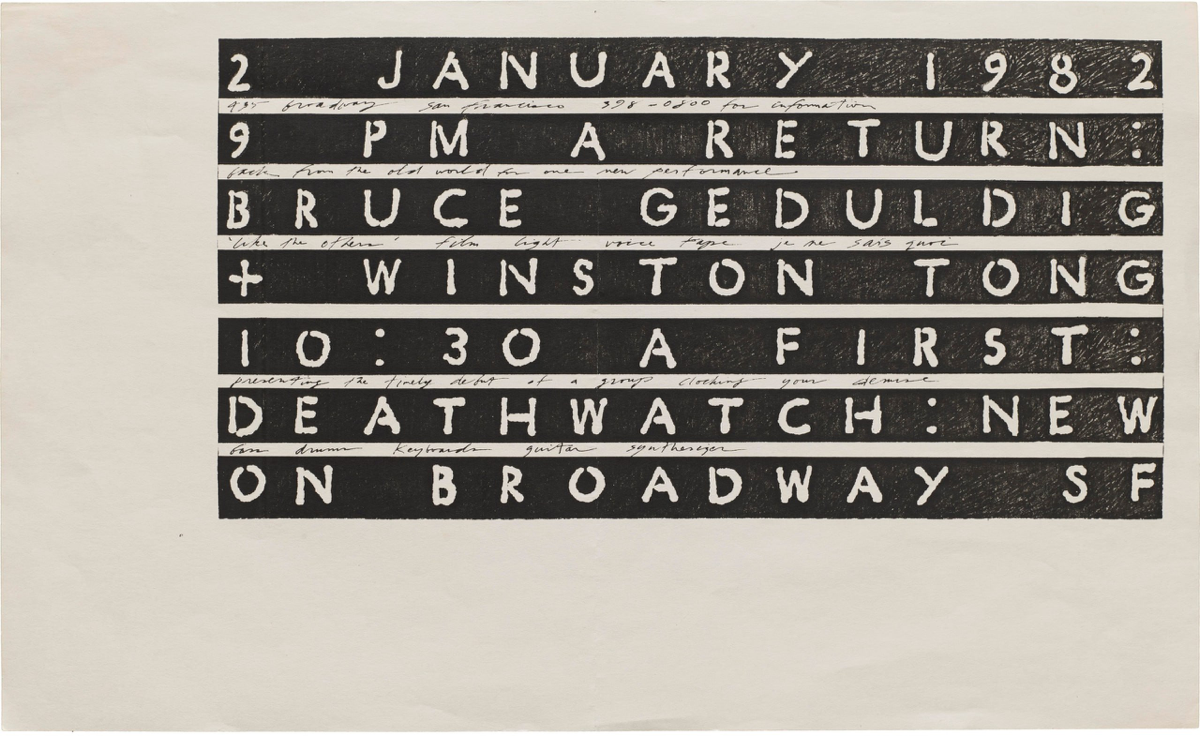 2 JANUARY 1982
435 broadway san francisco 398-0800 for information
9 PM A RETURN:
back from the old world for one new performance
BRUCE GEDULDIG
'like the others' film light voice tape je ne sais quoi
+ WINSTON TONG
10:30 A FIRST:
presenting the timely debut of a group clocking your demise
DEATHWATCH:NEW
bass drums keyboards guitar synthesizer
ON BROADWAY SF